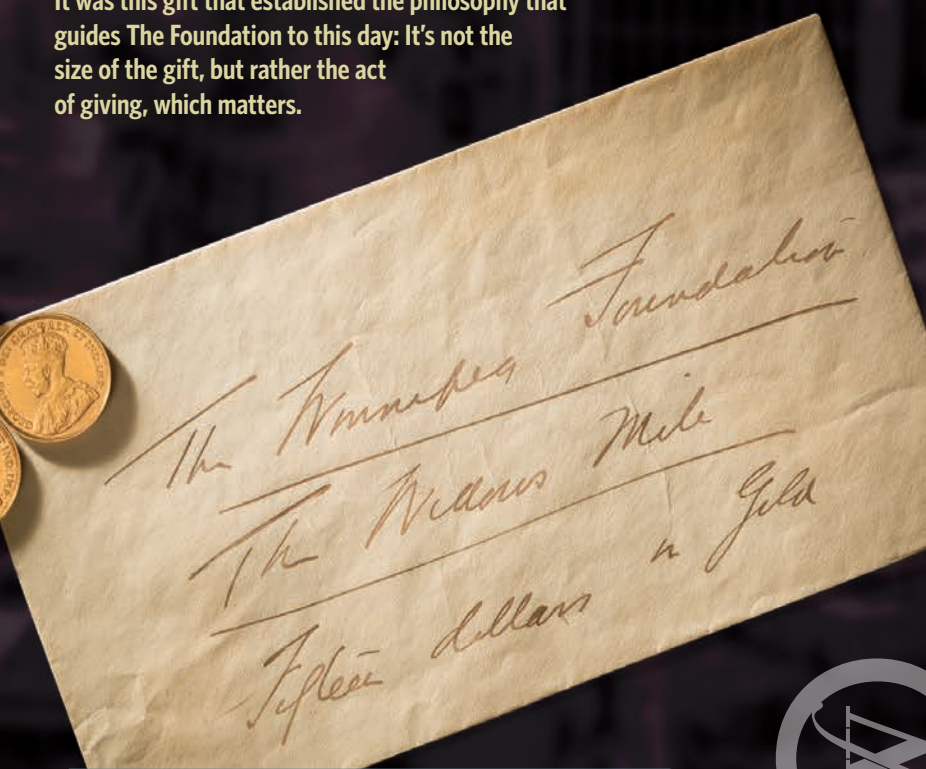 It was this gift that established the philosophy that
guides The Foundation to this day: It's not the
size of the gift, but rather the act
of giving, which matters.
The Winnipeg Foundation
The Widows Mite
Fifteen dollars in Gold